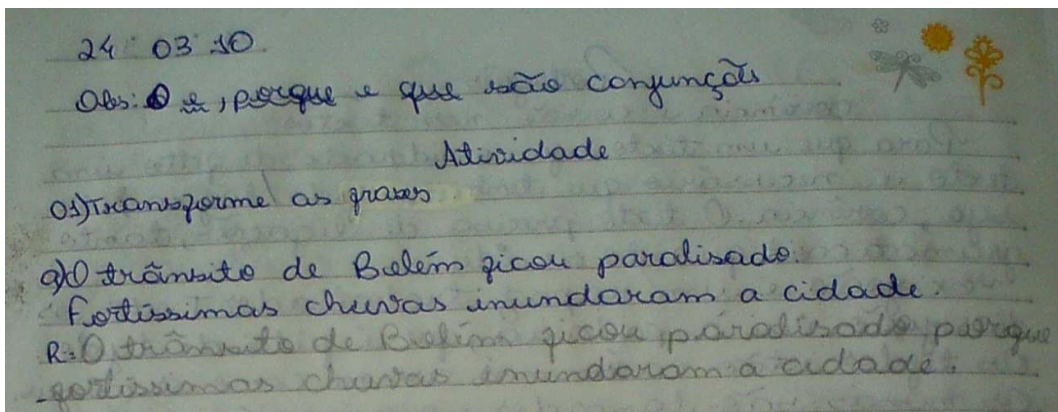 24 03 10.
Obs: O e, porque e que são conjunçõis
Atividade
01) Transforme as frases
a) O trânsito de Belém ficou paralisado.
Fortíssimas chuvas inundaram a cidade.
R: O trânsito de Belém ficou paralisado porque
fortíssimas chuvas inundaram a cidade.